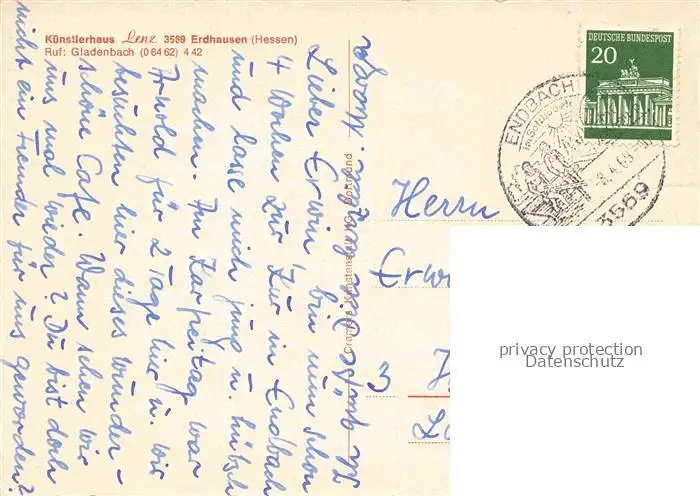 Künstlerhaus Lenz 3569 Erdhausen (Hessen)
Ruf: Gladenbach (0 64 62) 4 42
Lieber Erwin bin nun schon
4 Wochen zur Kur in Endbach
und lasse mich jung u. hübsch
machen. Im Karfreitag war
Arnold für 2 Tage hier u. wir
besuchten hier dieses wunder-
schöne Cafe. Wann sehen wir
uns mal wieder? Du bist doch
nicht ein Fremder für uns geworden?
Cramers Kunstanstalt KG, Dortmund
DEUTSCHE BUNDESPOST
20
ENDBACH
3569
Herrn
Erw
3
privacy protection
Datenschutz